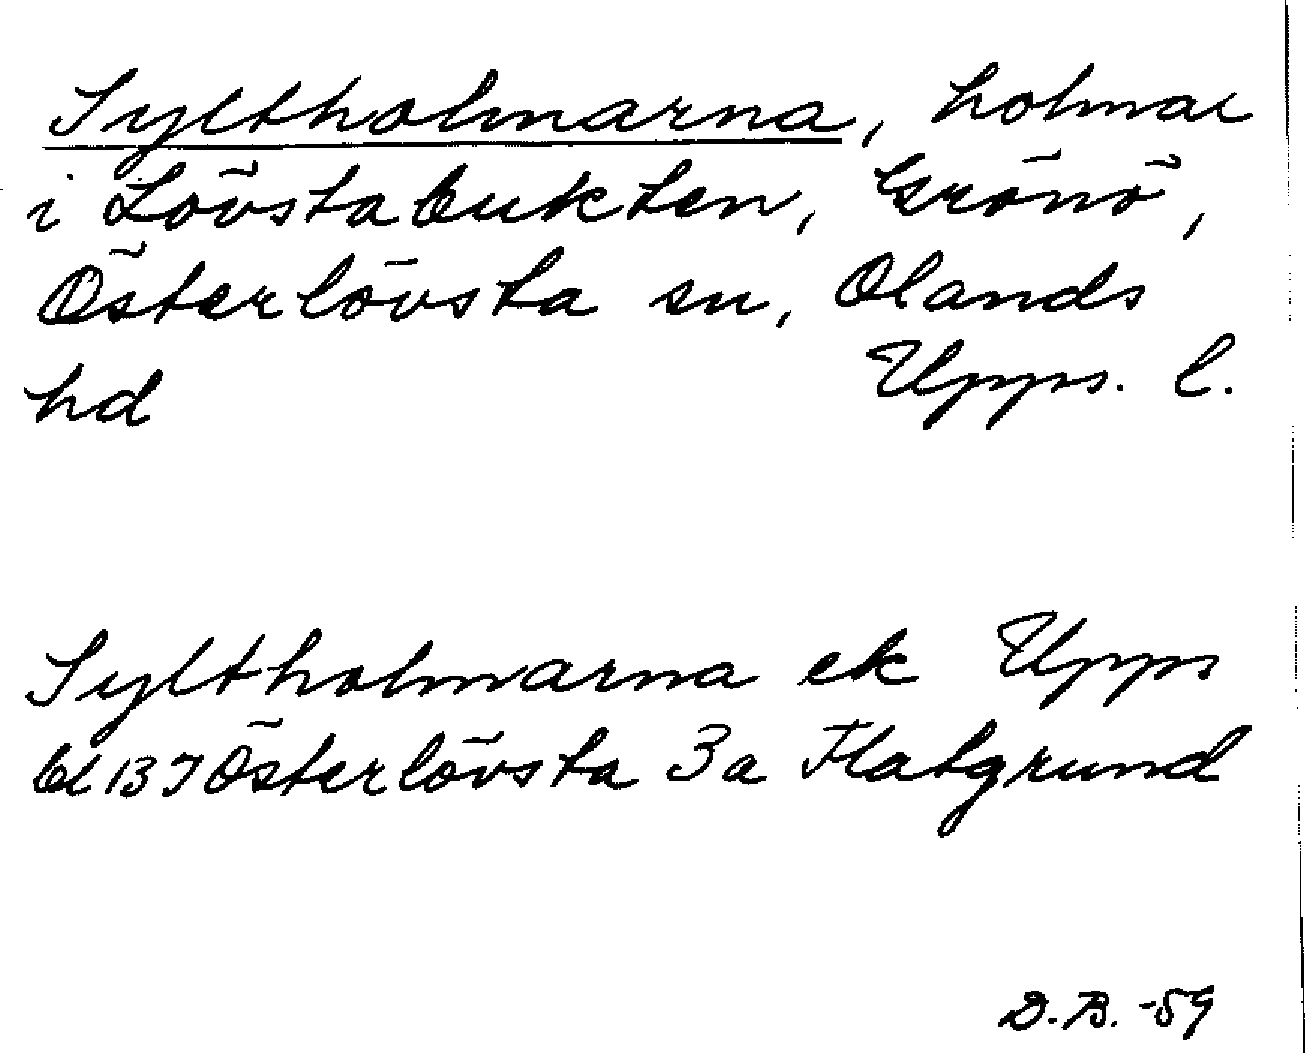 Syltholmarna, holmar
i Lövstabukten, Grönö,
Österlövsta sn, Olands
hd Upps. l.
Syltholmarna ek Upps
bl 137 Österlövsta 3a Flatgrund
D.B. -59